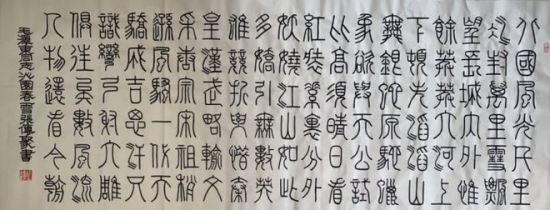 北國風光千里
冰封萬里雪飄
望長城內外惟
餘莽莽大河上
下頓失滔滔山
舞銀蛇原馳蠟
象欲與天公試
比高須晴日看
紅裝素裹分外
妖嬈江山如此
多嬌引無數英
雄競折腰惜秦
皇漢武略輸文
采唐宗宋祖稍
遜風騷一代天
驕成吉思汗只
識彎弓射大雕
俱往矣數風流
人物還看今朝
毛澤東同志沁園春雪張傳聚書